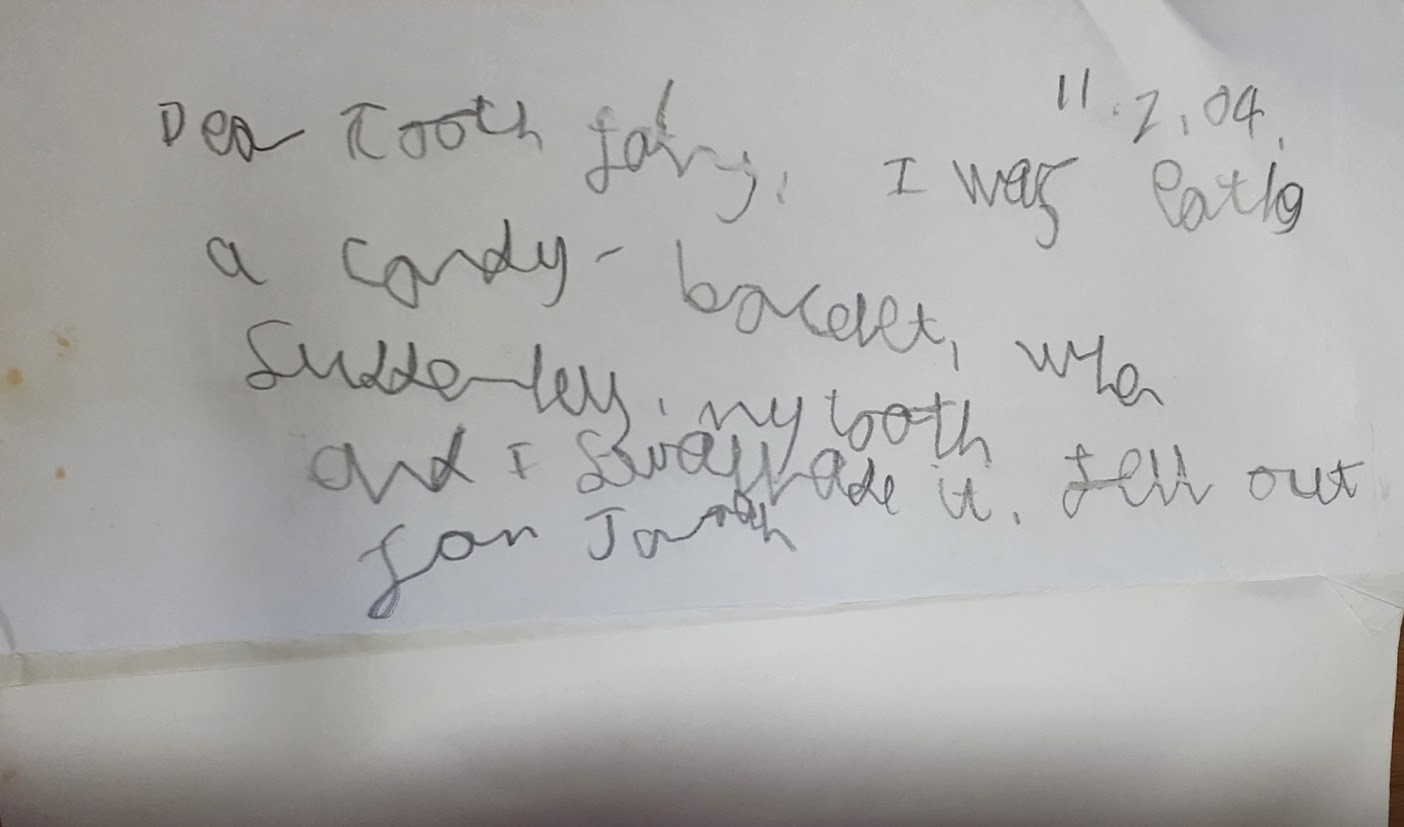 11.2.04.
Dear Tooth fairy, I was eatig
a candy-bracelet, when
Suddenley, my tooth
fell out
and I Swallade it.
from